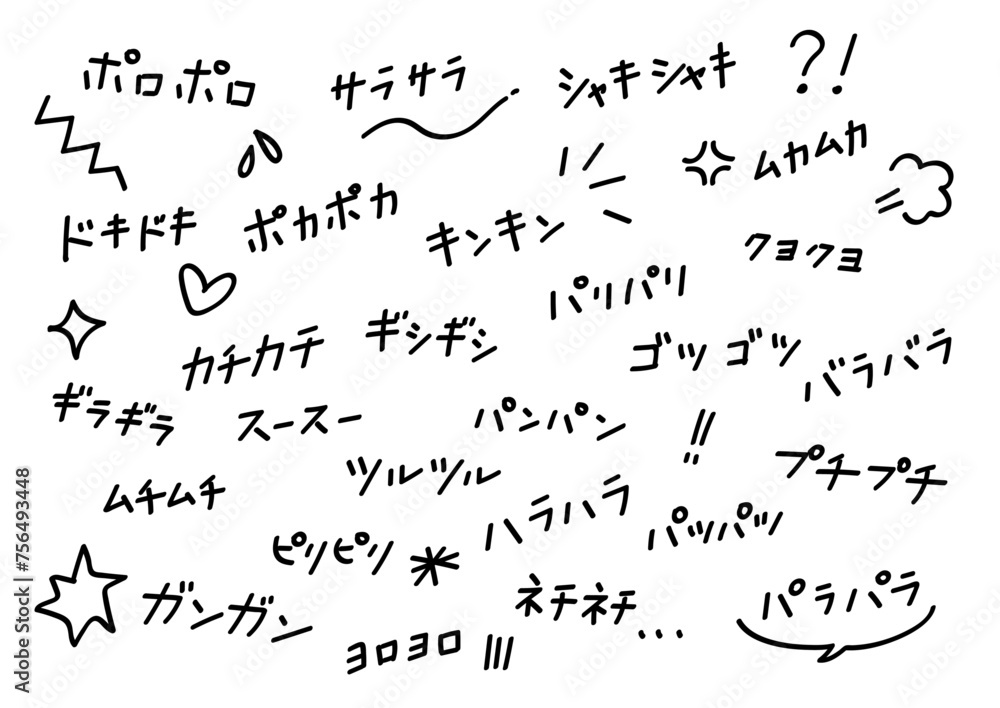 ポロポロ
サラサラ
シャキシャキ
?!
ムカムカ
ドキドキ
ポカポカ
キンキン
クヨクヨ
パリパリ
カチカチ
ギシギシ
ゴツゴツ
バラバラ
ギラギラ
スースー
パンパン
!!
プチプチ
ムチムチ
ツルツル
ハラハラ
パツパツ
ピリピリ
ガンガン
ネチネチ...
ヨロヨロ
パラパラ
Adobe Stock | #756493448